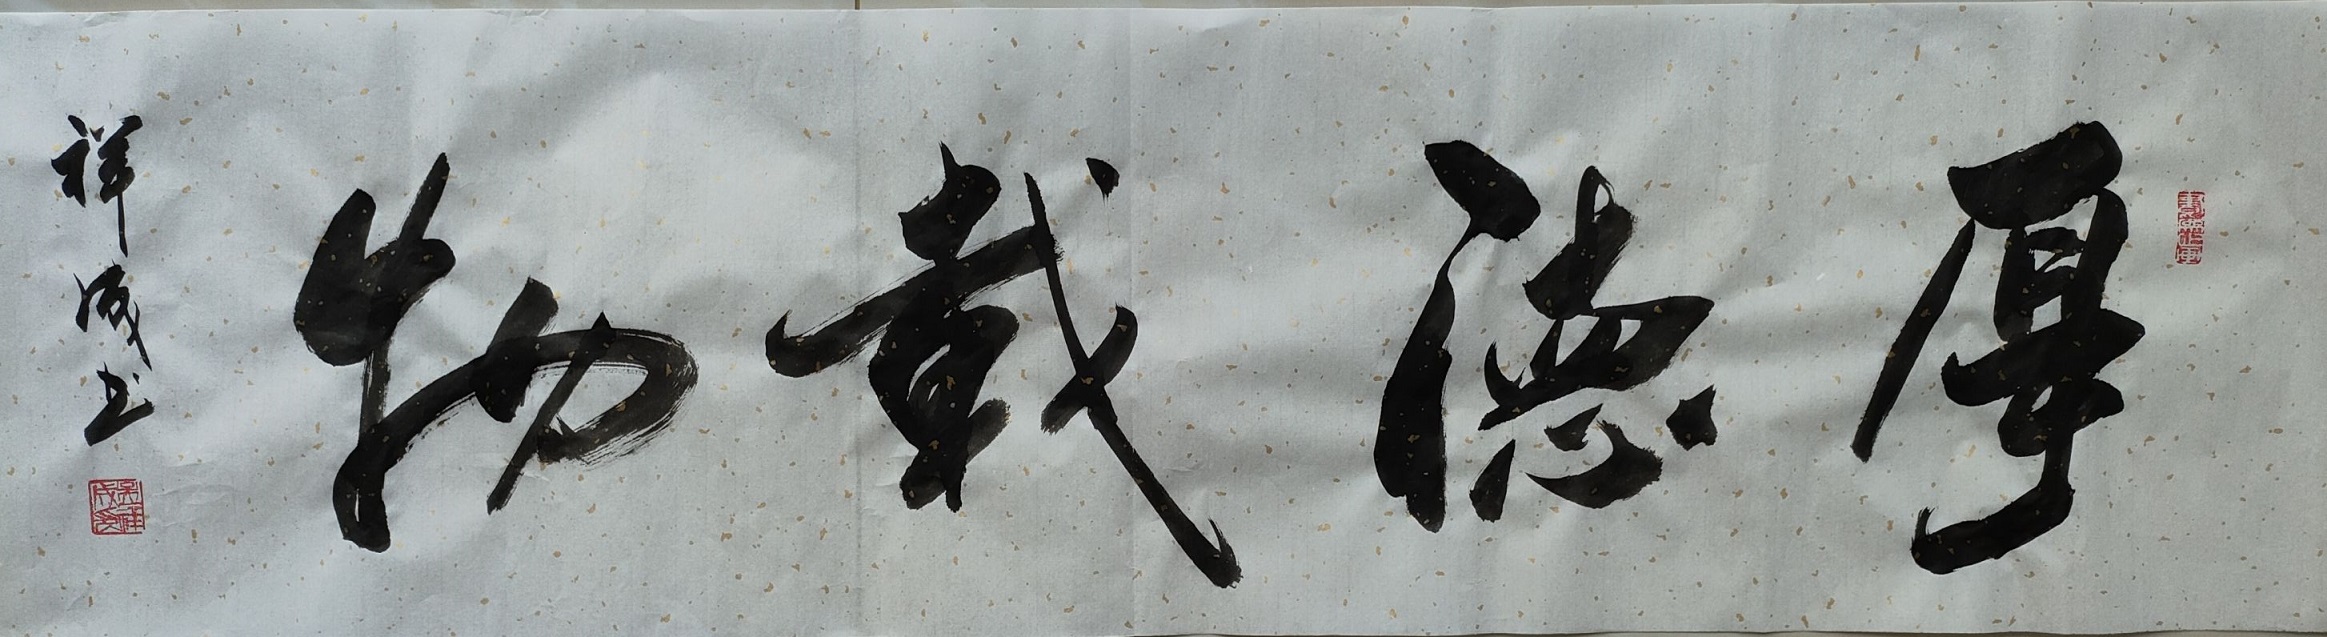 厚德載物
祥成书